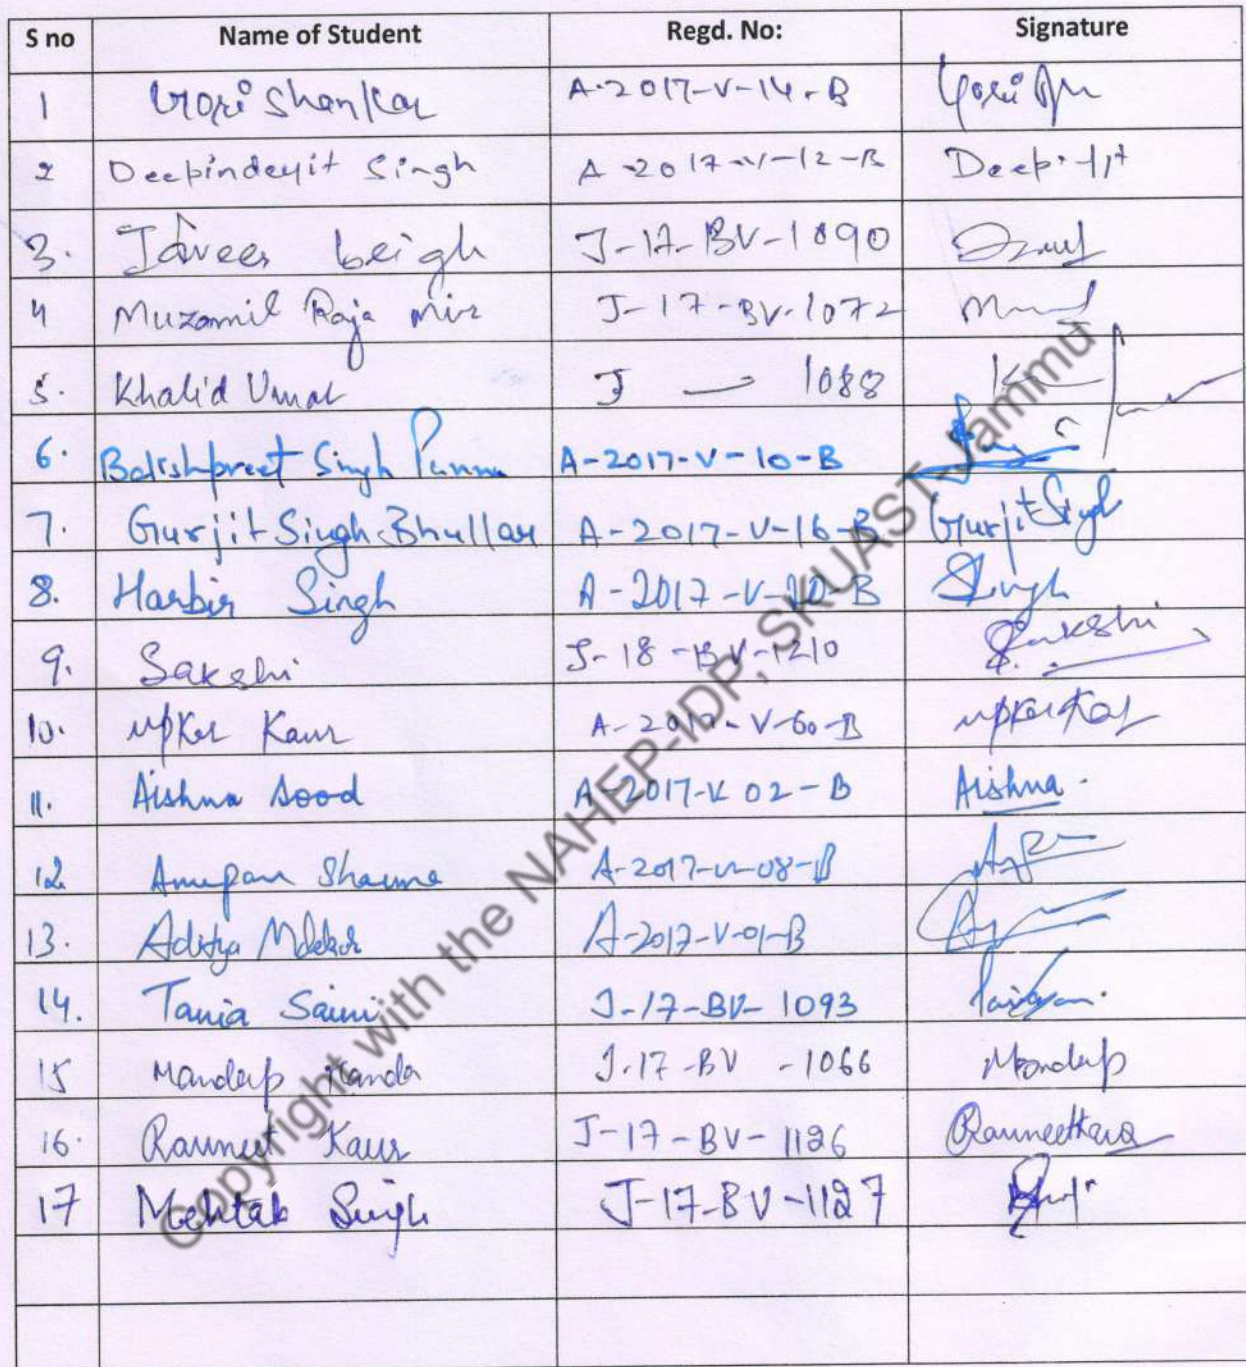 S no Name of Student Regd. No: Signature
1 Gori Shankar A-2017-V-14-B Gori
2 Deepinderjit Singh A-2017-V-12-B
3. Javees beigh J-17-BV-1090
4 Muzamil Raja Mir J-17-BV-1072
5. Khalid Umar J — 1088
6. Balishpreet Singh Pannu A-2017-V-10-B
7. Gurjit Singh Bhullar A-2017-V-16-B Gurjit Singh
8. Harbir Singh A-2017-V-20-B Singh
9. Sakshi J-18-BV-1210 Sakshi
10. Upkar Kaur A-2017-V-60-B
11. Aishna Sood A-2017-V 02-B Aishna.
12 Anupam Sharma A-2017-V-08-B
13. Aditya A-2017-V-01-B
14. Tania Saini J-17-BV-1093
15 Mandeep Nanda J-17-BV-1066 Mandeep
16. Ravneet Kaur J-17-BV-1126 Ravneet Kaur
17 Mehtab Singh J-17-BV-1127
Copyright with the NAHEP-IDP, SKUAST-Jammu